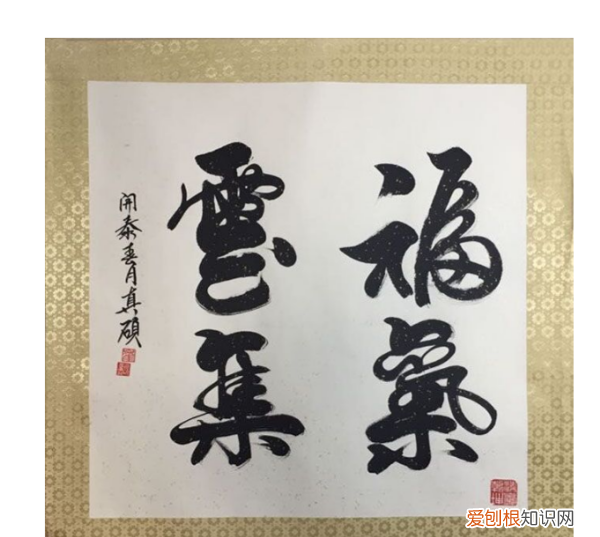 福氣
雲集
開泰春月真碩
爱刨根知识网